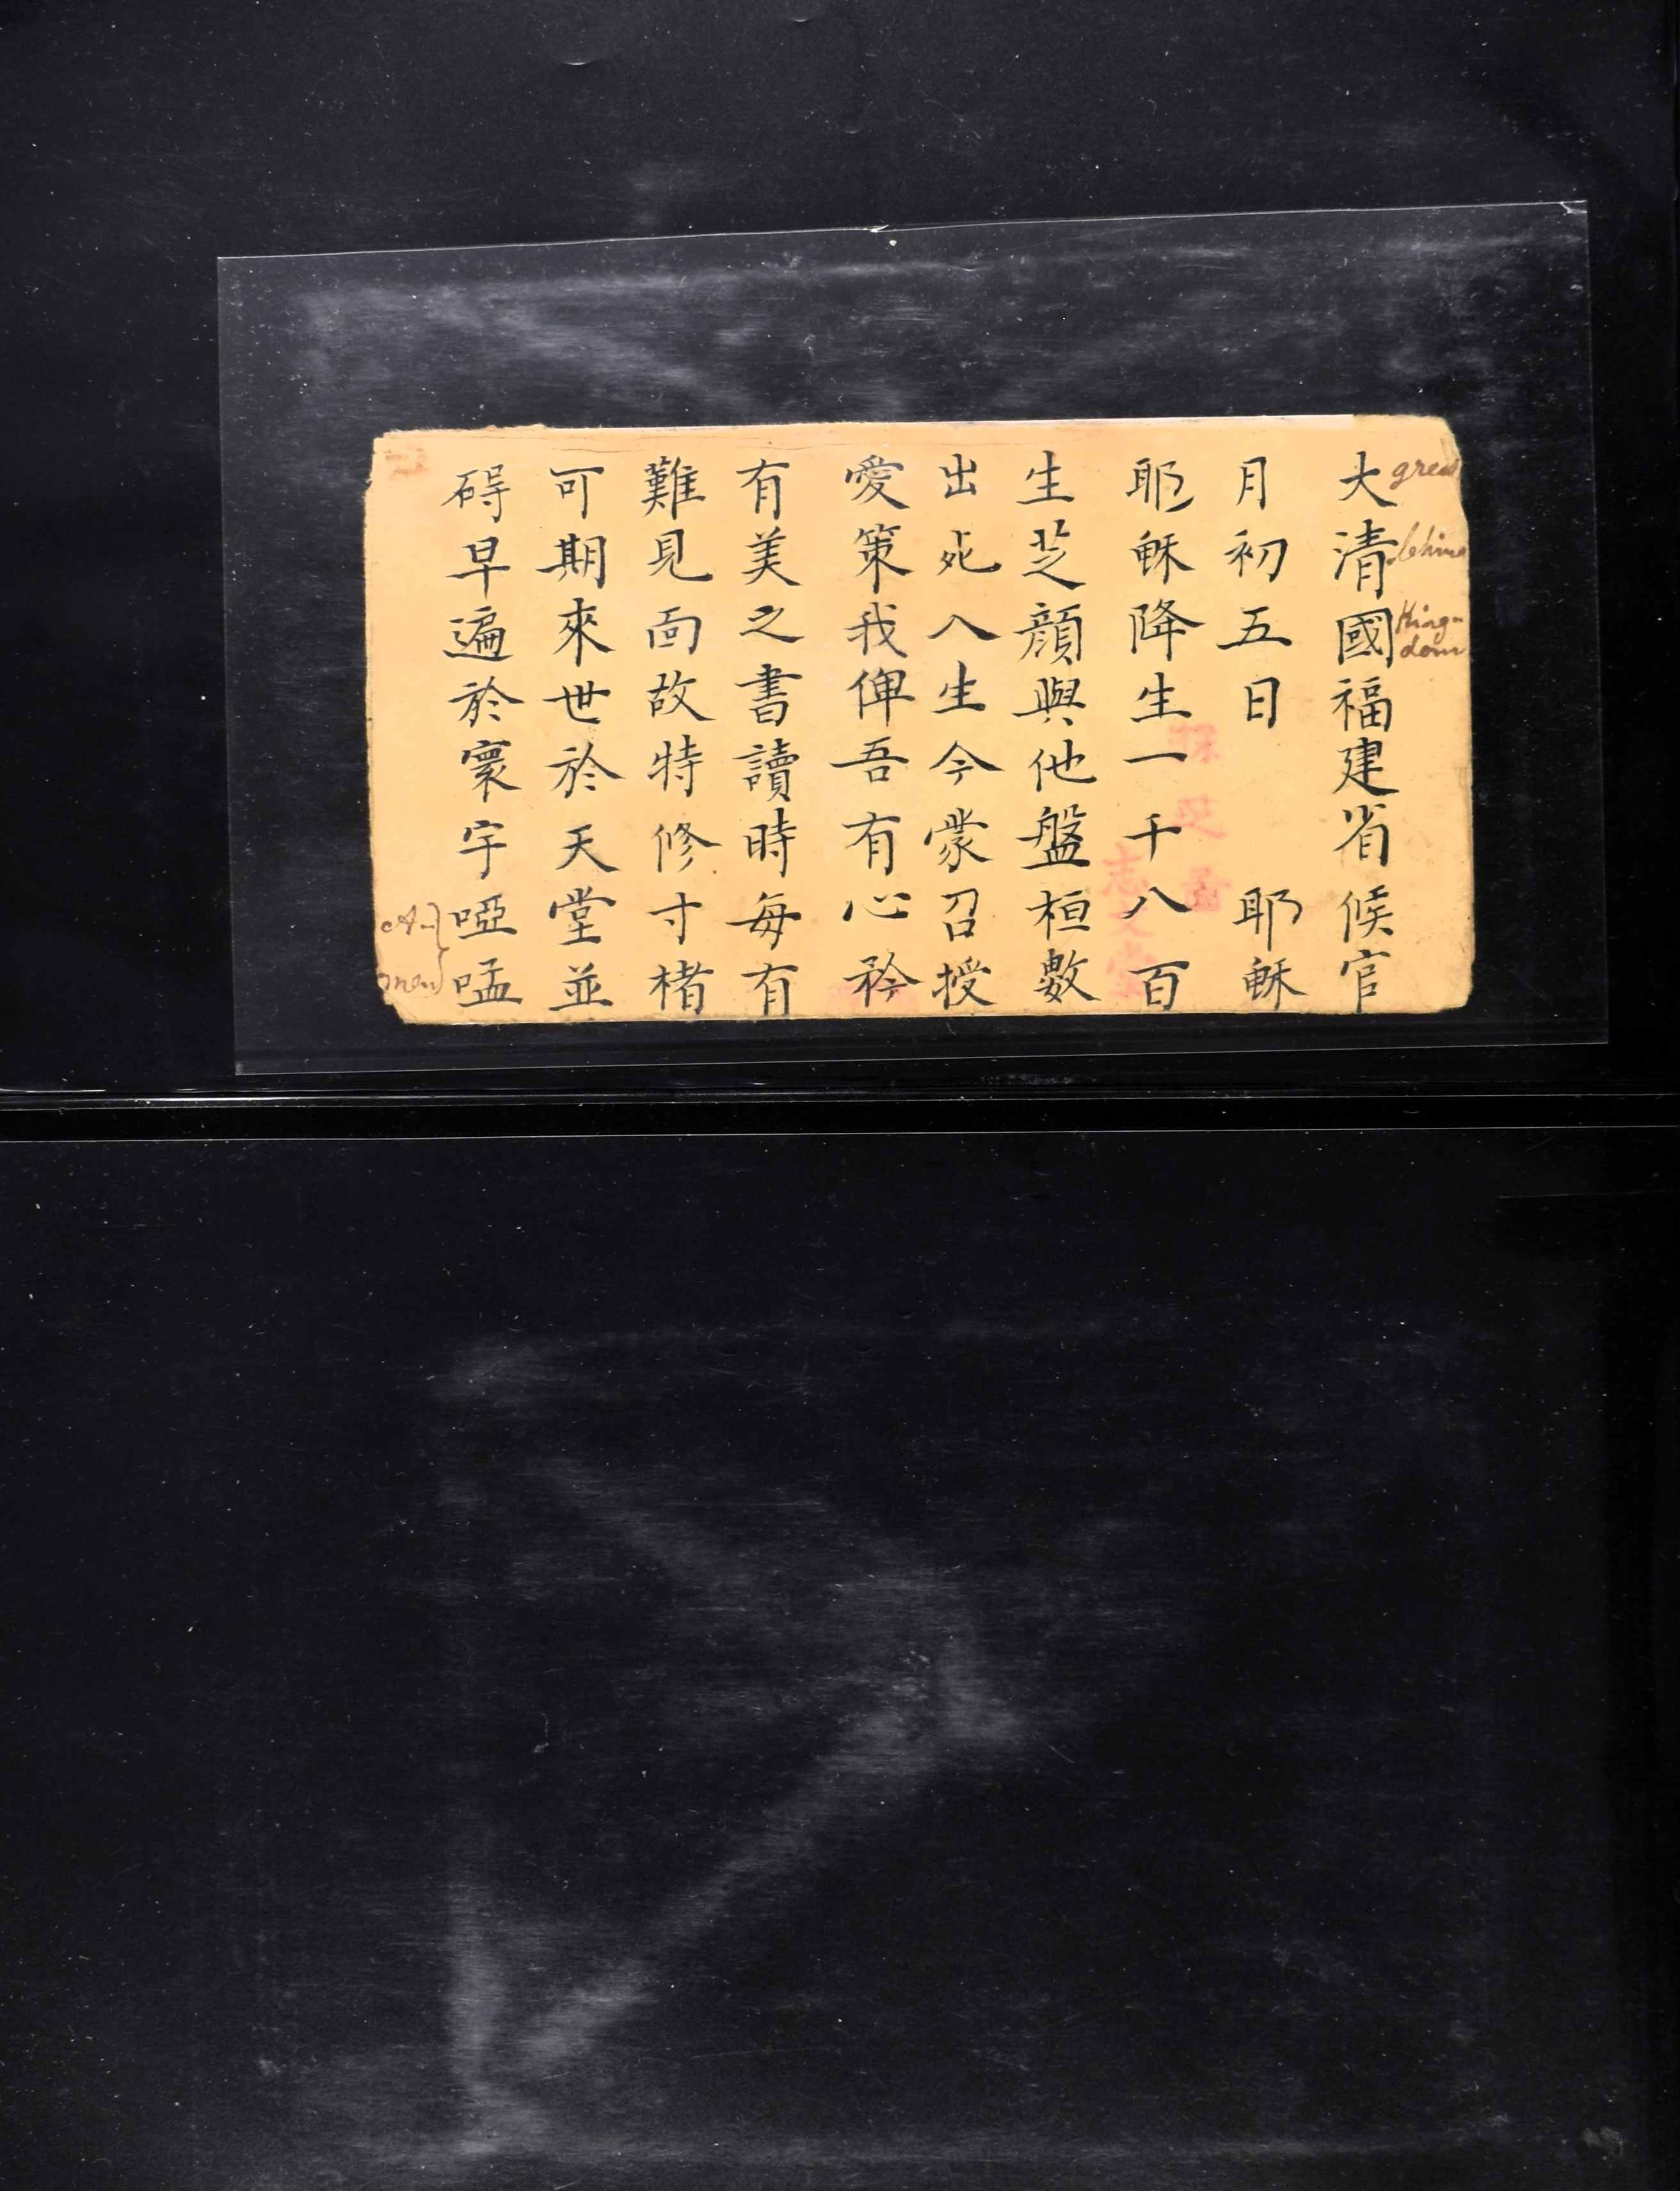 大清國福建省候官
月初五日 耶穌
耶穌降生一千八百
生芝顏與他盤桓數
出死入生今蒙召授
愛策我俾吾有心矜
有美之書讀時每有
難見面故特修寸楮
可期來世於天堂並
碍早遍於寰宇啞嗑
great
China
King-
dom
A-
men